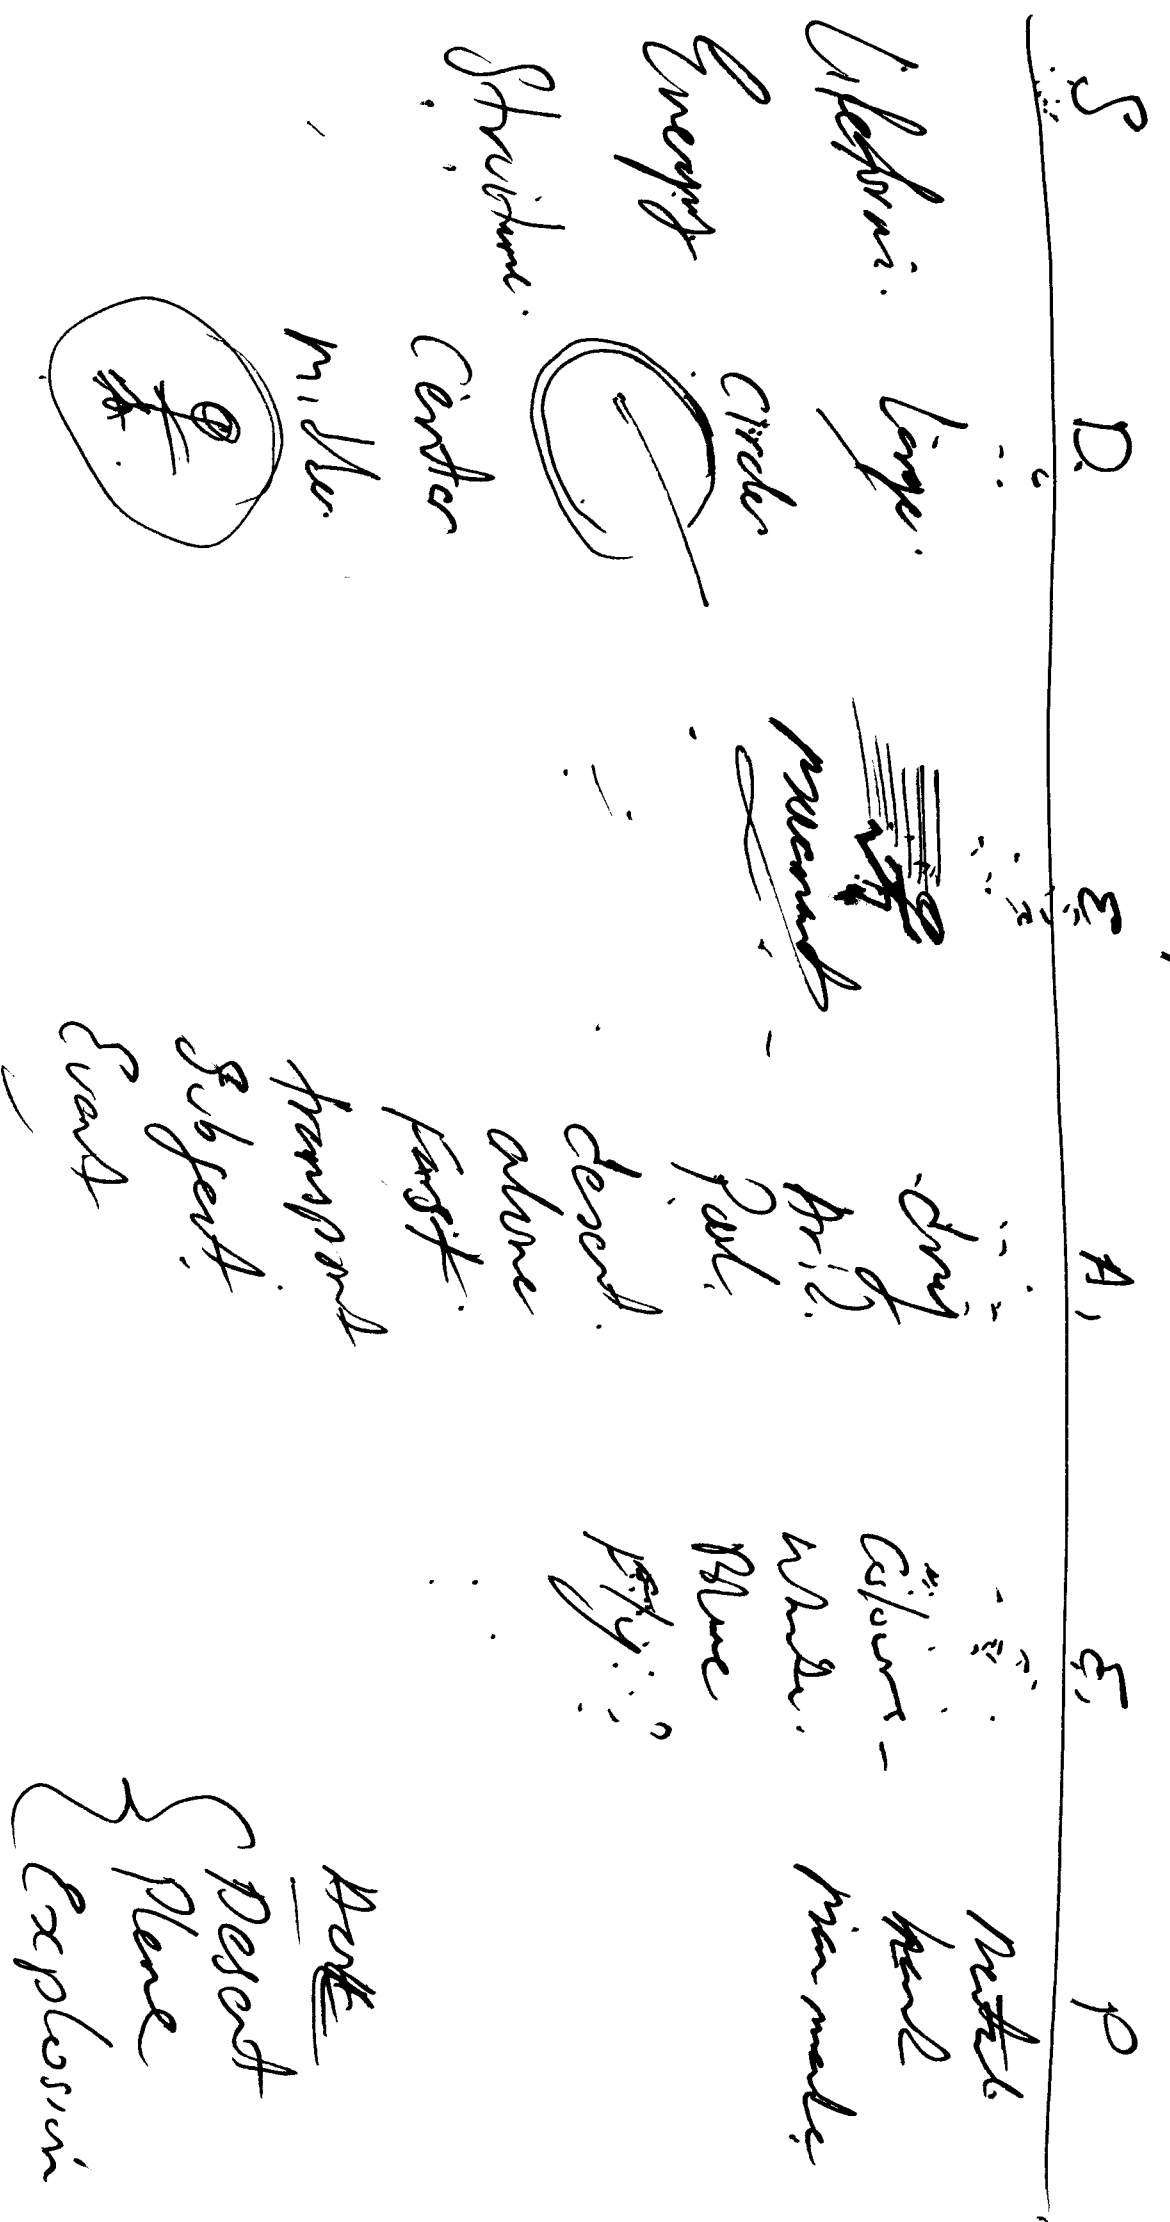 S D. E A, E, P
Energy
Structure.
Large.
Circular
Center
Middle.
dry
Arid.
desert.
alone
Fast.
transport
Subject.
Event
Colours –
White.
Blue
Metal.
hard
Man made
Desert
Plane
Explosion